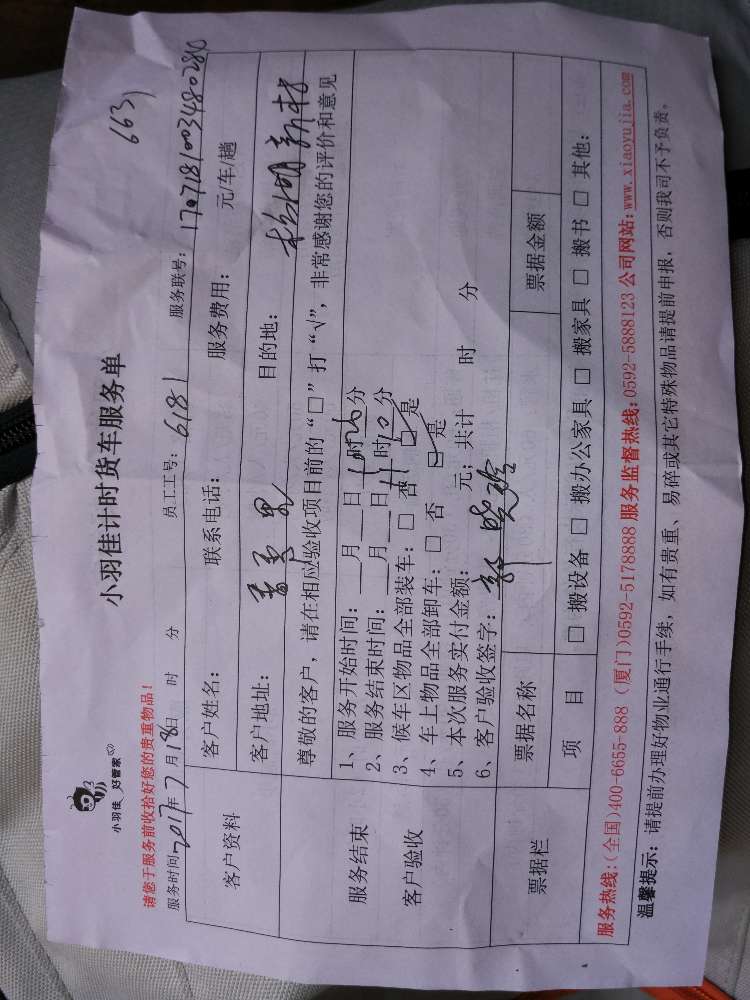 6631
小羽佳 好管家
小羽佳计时货车服务单
请您于服务前收拾好您的贵重物品!
服务时间2017年7月18日 时 分 员工工号: 6181 服务联号: 170718100348028
客户资料
客户姓名: 联系电话: 服务费用: 元/车/趟
客户地址: 目的地: 新村
服务结束 客户验收
尊敬的客户,请在相应验收项目前的“□”打“√”,非常感谢您的评价和意见
1、服务开始时间: 月 日 时 分
2、服务结束时间: 月 日 11时10分
3、候车区物品全部装车:□ 否 ☑ 是
4、车上物品全部卸车:□ 否 ☑ 是
5、本次服务实付金额: 元;共计 时 分
6、客户验收签字: 郭晓玲
票据栏
票据名称 票据金额
项 目 □ 搬设备 □ 搬办公家具 □ 搬家具 □ 搬书 □ 其他:
服务热线:(全国)400-6655-888 (厦门)0592-5178888 服务监督热线:0592-5888123 公司网站:www.xiaoyujia.com
温馨提示: 请提前办理好物业通行手续,如有贵重、易碎或其它特殊物品请提前申报,否则我司不予负责。